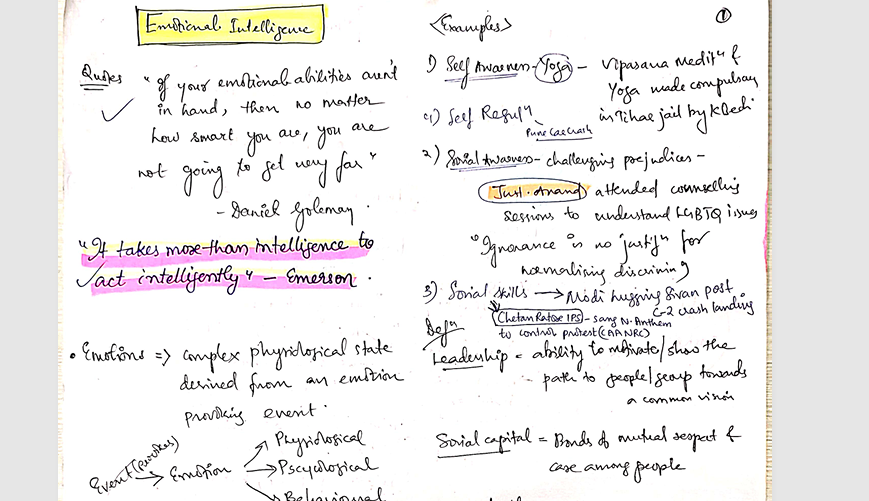 Emotional Intelligence
Quotes "If your emotional abilities aren't
in hand, then no matter
how smart you are, you are
not going to get very far"
- Daniel Goleman.
"It takes more than intelligence to
act intelligently" - Emerson.
• Emotions => complex physiological state
derived from an emotion
provoking event.
Event (provokes) → Emotion
Physiological
Pscycological
Behavioural
1
<Examples>
1) Self Awareness - Yoga - Vipasana Meditn &
Yoga made compulsory
in Tihar jail by K Bedi
Self Reguln
Pune Car Crash
2) Social Awarness - challenging prejudices -
Just. Anand attended counselling
sessions to understand LGBTQ issues
"Ignorance is no justifn" for
normalising discriming
3) Social skills → Modi hugging Sivan post
C-2 crash landing
Chetan Rathore IPS - sang N. Anthem
to control protest (CAA NRC)
Defn
Leadership = ability to motivate/show the
path to people/group towards
a common vision
Social capital = Bonds of mutual respect &
case among people